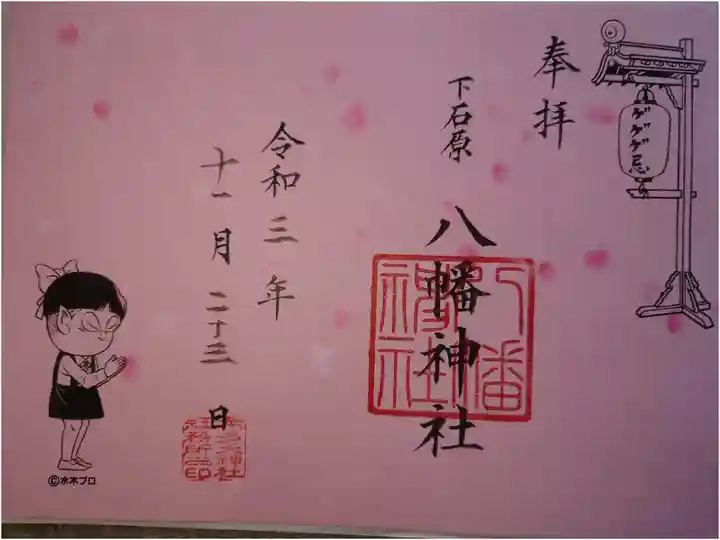 ゲゲゲ忌
奉拝
下石原
八幡神社
八幡神社
令和三年
十一月二十三日
©水木プロ